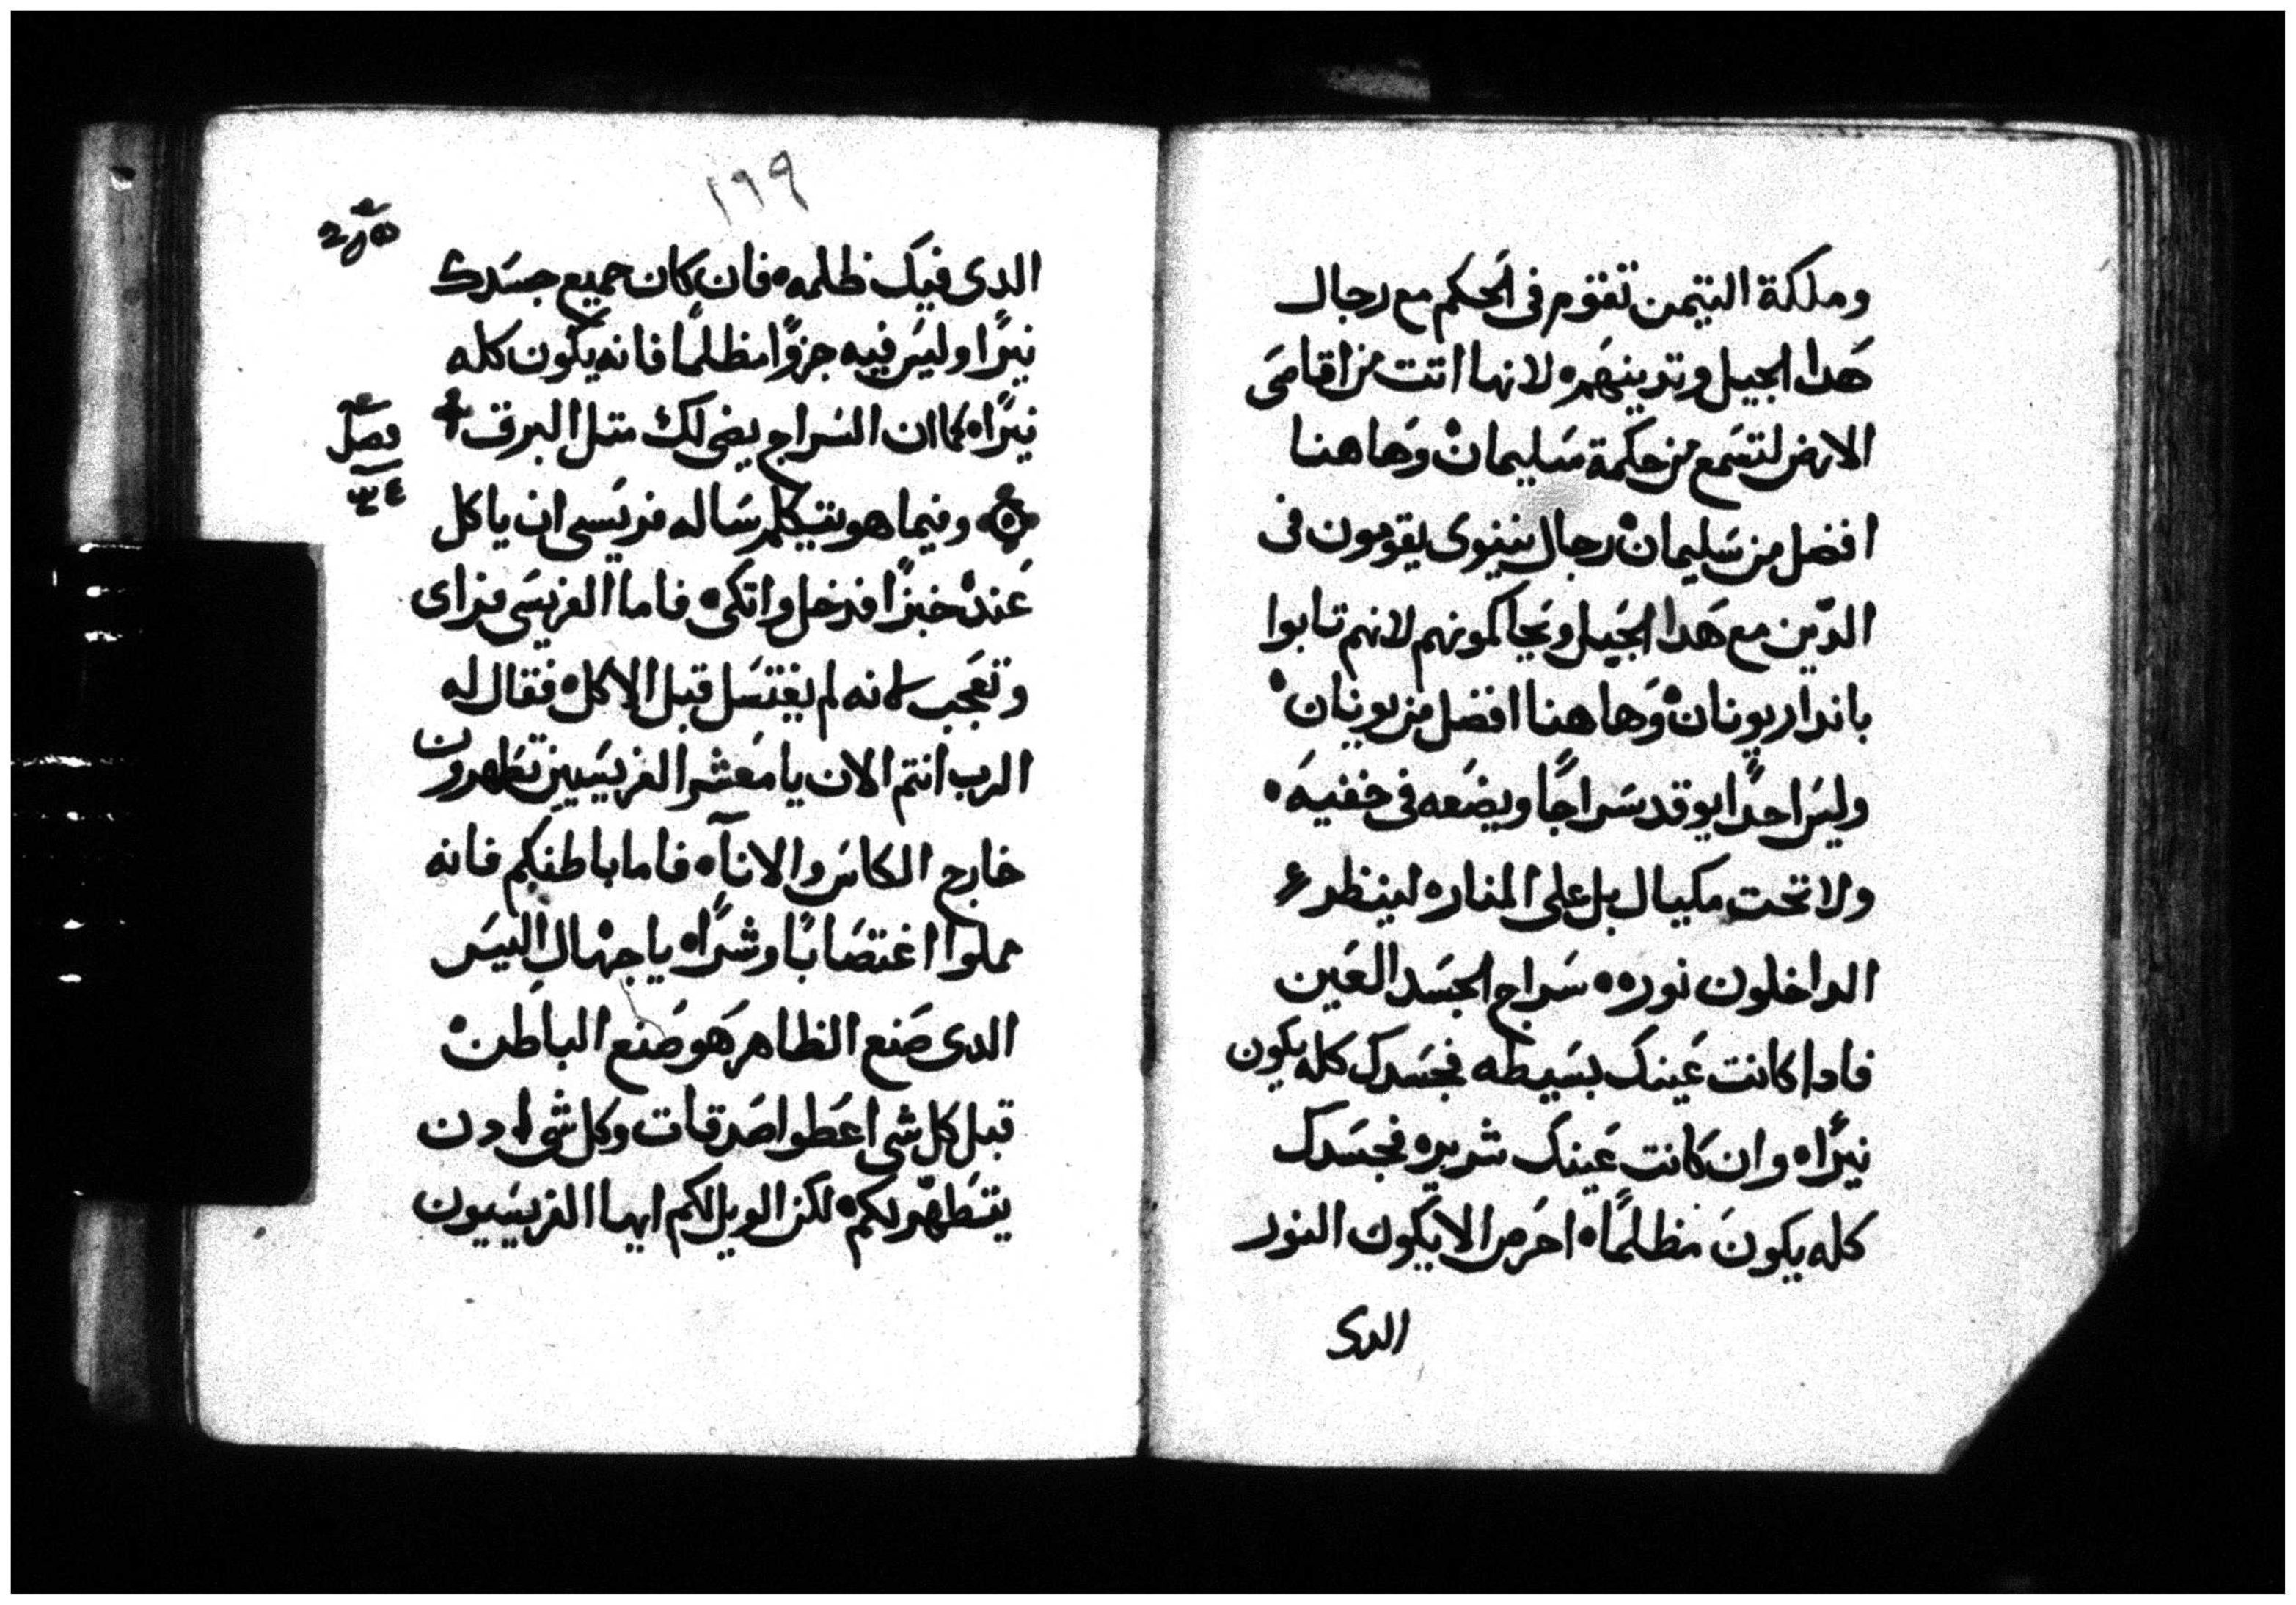 وملكة التيمن تقوم فى الحكم مع رجال
هدا الجيل وتدينهم لانها اتت من اقاصى
الارض لتسمع من حكمة سليمان وهاهنا
افضل من سليمان رجال نينوى يقومون فى
الدين مع هدا الجيل ويحاكمونهم لانهم تابوا
باندار يونان وهاهنا افضل من يونان
وليس احدًا يوقد سراجًا ويضعه فى خفيه
ولا تحت مكيال بل على المناره لينظر
الداخلون نوره سراج الجسد العين
فادا كانت عينك بسيطه فجسدك كله يكون
نيرًا وان كانت عينك شريره فجسدك
كله يكون مظلمًا احرص الا يكون النور
الدى
١٩٩
الدى فيك ظلمه فان كان جميع جسدك
نيرًا وليس فيه جزوًا مظلمًا فانه يكون كله
نيرًا كما ان السراج يضى لك متل البرق
فصل
٣٤
وفيما هو يتكلم ساله فريسى ان ياكل
عنده خبزًا فدخل واتكى فاما الفريسى فراى
وتعجب لانه لم يغتسل قبل الاكل فقال له
الرب انتم الان يا معشر الفريسيين تطهرون
خارج الكاس والانآ فاما باطنكم فانه
مملوا اغتصابًا وشرًا يا جهال اليس
الدى صنع الظاهر هو صنع الباطن
قبل كل شى اعطوا صدقات وكل شى
يتطهر لكم لكن الويل لكم ايها الفريسيون